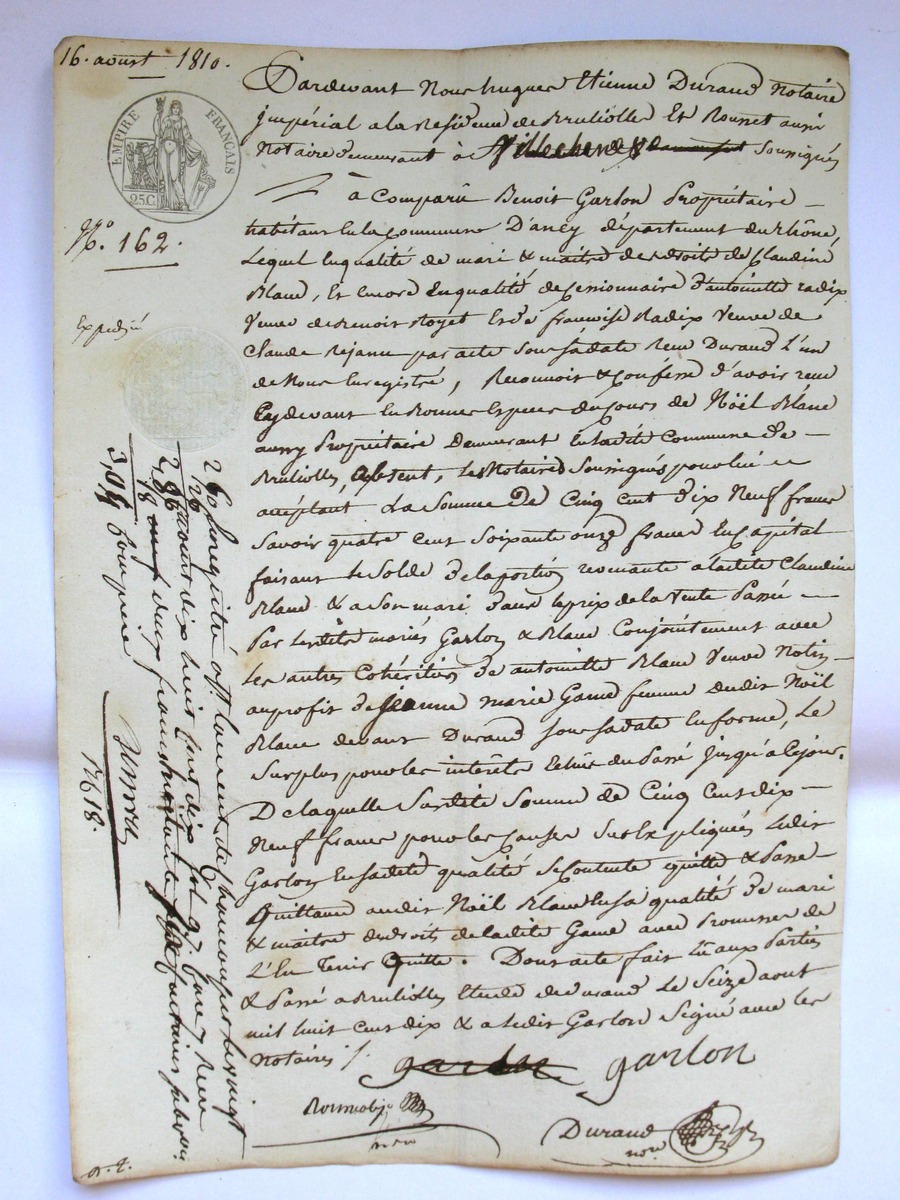 16. aoust 1810.
EMPIRE FRANÇAIS
25.C
N.º 162.
Expedié
Pardevant Nous hugues Etienne Durand Notaire
jmpérial a la Residence de Bruliolle Et Bonnet aussi
Notaire demeurant à Villechenève Soussignés
à Comparû Benoit Garlon Propriétaire
habitant En la Commune D'ancy département du rhône,
Lequel En qualité de mari & maitre des droits de Claudine
Blanc, Et Encore En qualité de Cessionnaire d'antoinette radix
Veuve de Benoit Royet Et de françoise Radix Veuve de
Claude Rejanu par acte Sous Sa date Reçu Durand L'un
de Nous Enregistré, Reconnoit & Confesse d'avoir reçu
Cydevant En Bonnes Especes du Cours de Nöel Blanc
aussy Propriétaire Demeurant En ladite Commune de
Bruliolles, absent, Les Notaires Soussignés pour lui
acceptant La Somme De Cinq Cent dix Neuf francs
Savoir quatre Cent Soixante onze francs En Capital
faisant le Solde de la portion revenante a ladite Claudine
Blanc & a Son mari dans le prix de la Vente Passée
Par lesdits mariés Garlon & Blanc Conjointement avec
les autres Cohéritiers de antoinette Blanc Veuve
au profit de jeanne marie Game femme dudit Noël
Blanc devant Durand Sous Sa date En forme, Le
Surplus pour les intérêts Echus du Passé jusqu'a Cejour.
De laquelle Susdite Somme de Cinq Cent dix
Neuf francs pour les Causes Sus Expliquées Ledit
Garlon En Sadite qualité Se Contente quitte & Passe
Quittance audit Noël Blanc En Sa qualité de mari
& maitre des droits de ladite Game avec Promesse de
L'En Tenir Quitte. Dont acte fait Lû aux Parties
& Passé a Bruliolles Etude de Durand Le Seize aout
mil huit Cent dix & a Ledit Garlon Signé avec les
Notaires /.
garlon garlon
Durand
nore
2,60 Enregistré
26 aoust dix huit Cent dix
2,86 deux francs
18
3,04